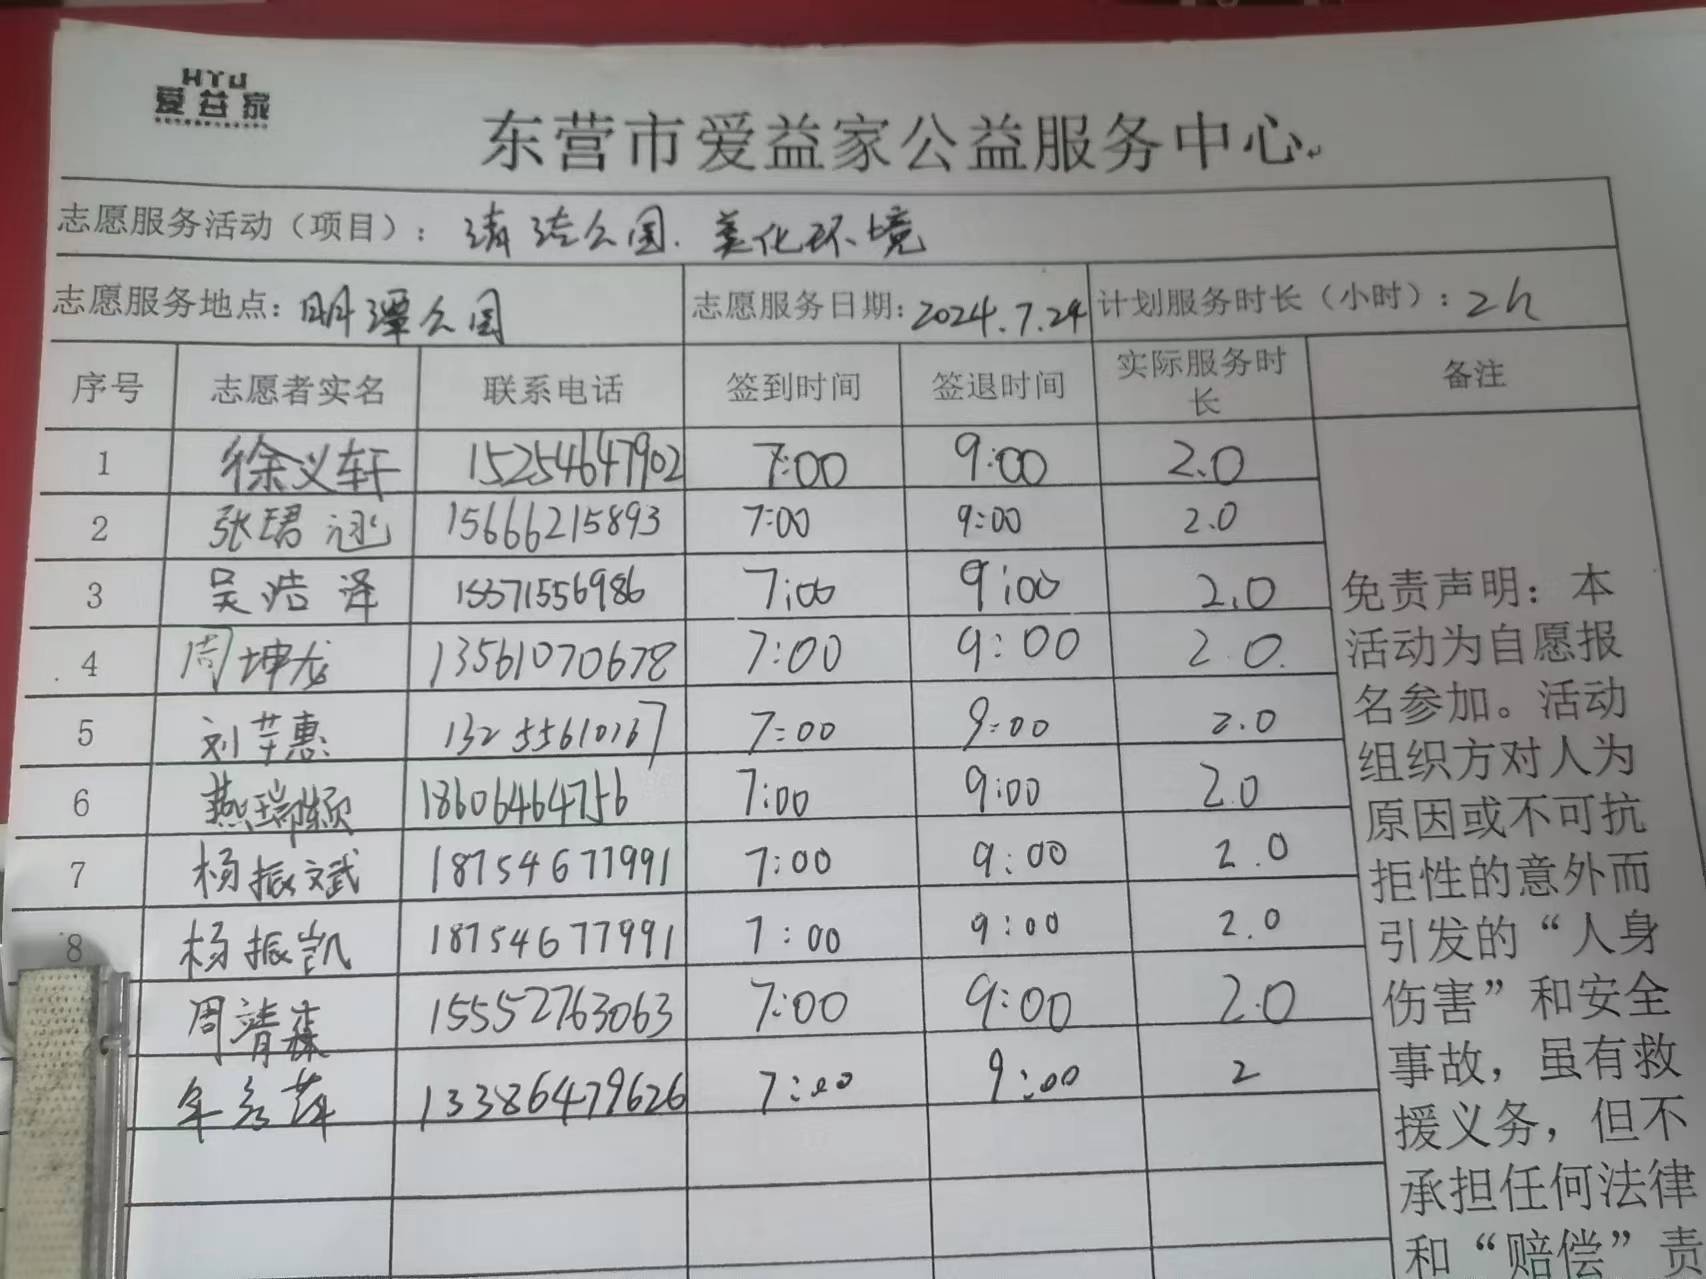 HYU
爱益家
东营市爱益家公益服务中心
志愿服务活动（项目）：清洁公园.美化环境
志愿服务地点：明潭公园 志愿服务日期：2024.7.24 计划服务时长（小时）：2h
序号 志愿者实名 联系电话 签到时间 签退时间 实际服务时长 备注
1 徐义轩 15254647902 7:00 9:00 2.0
2 张珺 15666215893 7:00 9:00 2.0
3 吴浩泽 15371556986 7:00 9:00 2.0
4 周坤龙 13561070678 7:00 9:00 2.0
5 刘芊惠 7:00 9:00 2.0
6 燕瑞颖 18606464756 7:00 9:00 2.0
7 杨振斌 18754677991 7:00 9:00 2.0
8 杨振凯 18754677991 7:00 9:00 2.0
周靖森 15552763063 7:00 9:00 2.0
13386479626 7:00 9:00 2
免责声明：本
活动为自愿报
名参加。活动
组织方对人为
原因或不可抗
拒性的意外而
引发的“人身
伤害”和安全
事故，虽有救
援义务，但不
承担任何法律
和“赔偿”责